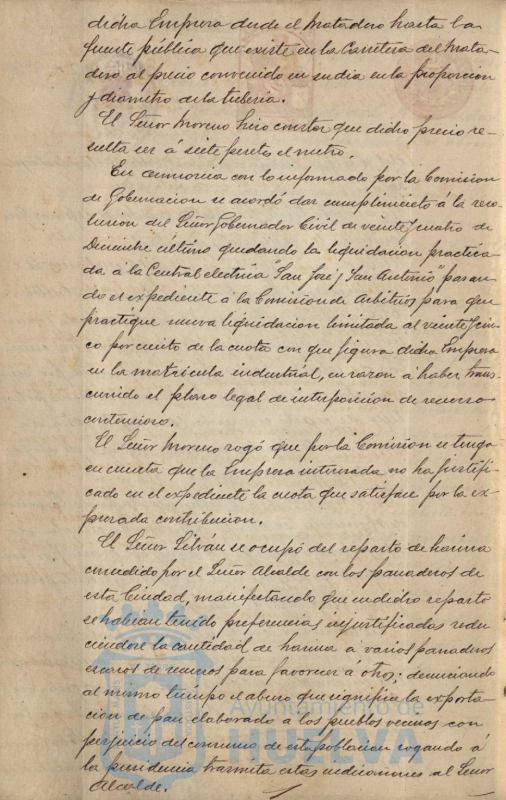 dicha Empresa desde el Matadero hasta la
fuente pública que existe en la Carretera del Mata-
dero al precio convenido en su dia en la proporcion
y diametro de la tuberia.
El Señor Moreno hizo constar que dicho precio re-
sulta ser á siete pesetas el metro.
En armonia con lo informado por la Comision
de Gobernacion se acordó dar cumplimiento á la reso-
lucion del Señor Gobernador Civil de veinte y cuatro de
Diciembre último quedando la liquidacion practica-
da á la Central electrica "San José y San Antonio" pasan-
do el expediente á la Comision de Arbitrios para que
practique nueva liquidacion limitada al veinte y cin-
co por ciento de la cuota con que figura dicha Empresa
en la matricula industrial, en razon á haber trans-
currido el plazo legal de interposicion de recurso
contencioso.
El Señor Moreno rogó que por la Comision se tenga
en cuenta que la Empresa interesada no ha justifi-
cado en el expediente la cuota que satisface por la ex-
presada contribucion.
El Señor Silván se ocupó del reparto de harina
concedido por el Señor Alcalde con los panaderos de
esta Ciudad, manifestando que en dicho reparto
se habian tenido preferencias injustificadas redu
ciendose la cantidad de harina a varios panaderos
escasos de recursos para favorecer á otros; denunciando
al mismo tiempo el abuso que significa la exporta-
cion de pan elaborado a los pueblos vecinos con
perjuicio del consumo de esta poblacion rogando á
la presidencia trasmita estas indicaciones al Señor
Alcalde.
Ayuntamiento de
HUELVA